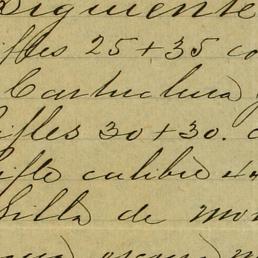 Siguiente
ifles 25+35 co
Cartuchera
ifles 30+30. c
ifle calibre 44
Silla de mon